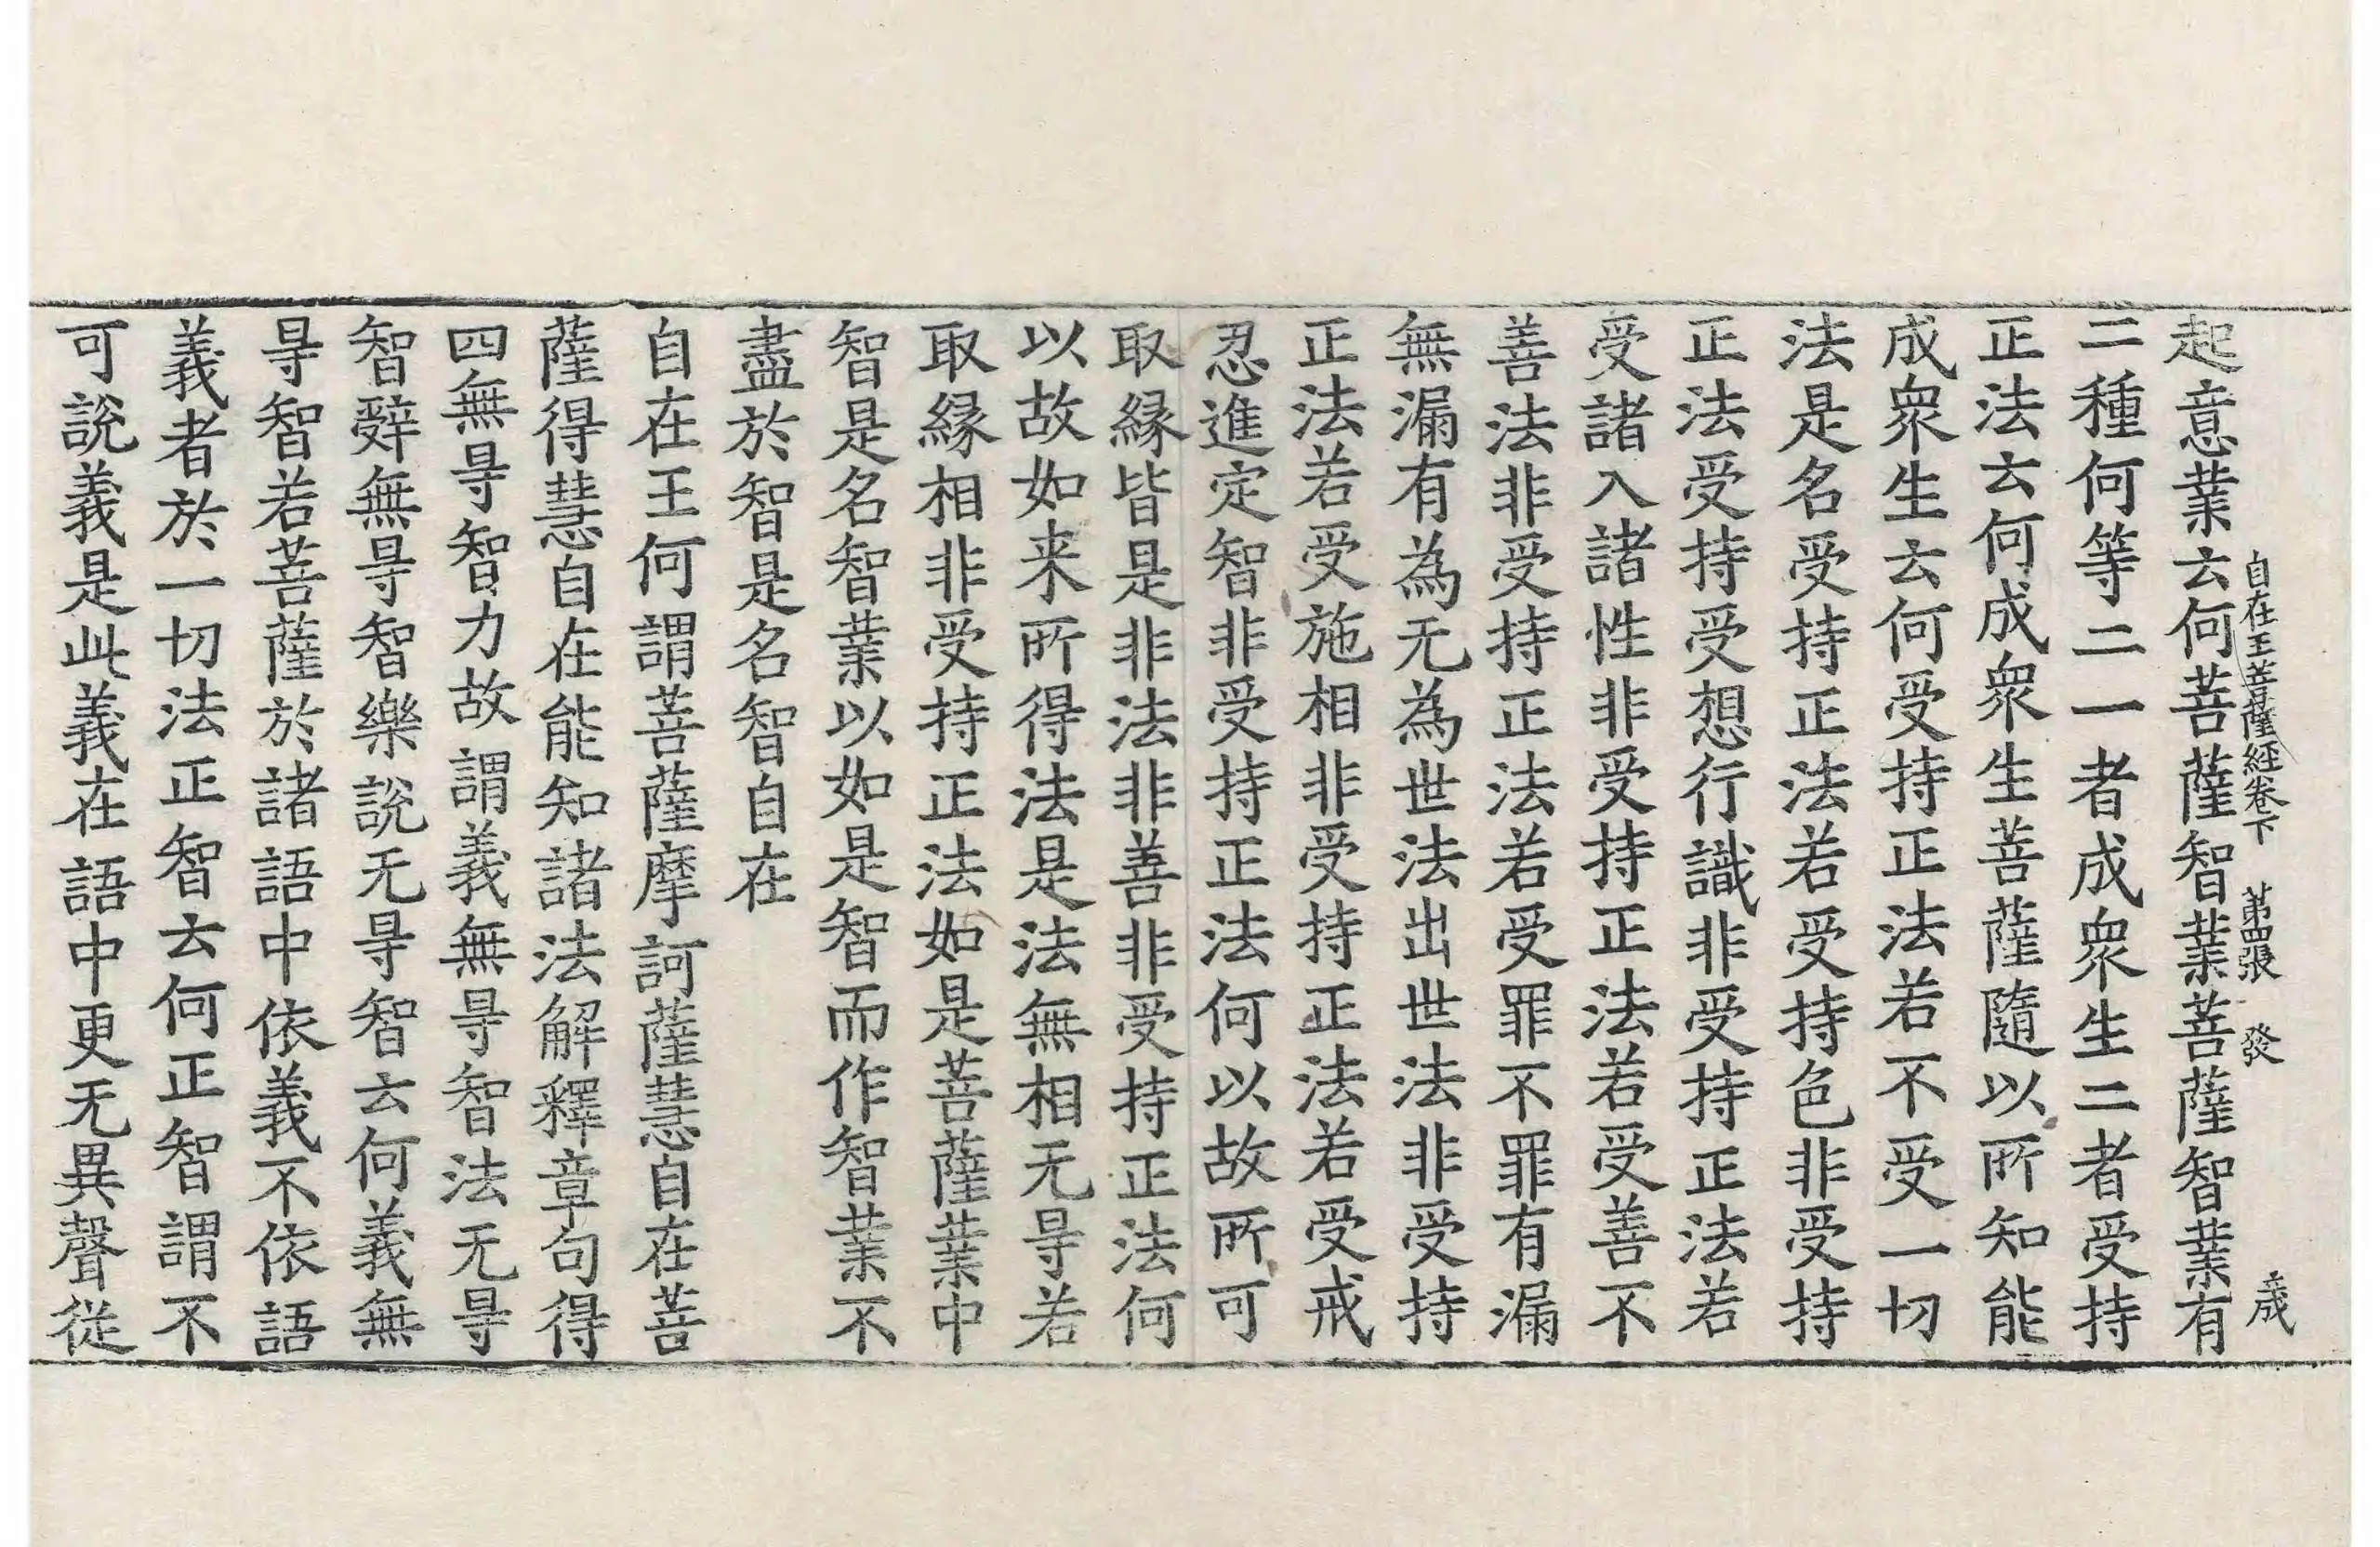 自在王菩薩經卷下 苐四張 發
起意業云何菩薩智業菩薩智業有
二種何等二一者成衆生二者受持
正法云何成衆生菩薩隨以所知能
成衆生云何受持正法若不受一切
法是名受持正法若受持色非受持
正法受持受想行識非受持正法若
受諸入諸性非受持正法若受善不
善法非受持正法若受罪不罪有漏
無漏有為无為世法出世法非受持
正法若受施相非受持正法若受戒
忍進定智非受持正法何以故所可
取縁皆是非法非善非受持正法何
以故如来所得法是法無相无㝵若
取縁相非受持正法如是菩薩業中
智是名智業以如是智而作智業不
盡於智是名智自在
自在王何謂菩薩摩訶薩慧自在菩
薩得慧自在能知諸法解釋章句得
四無㝵智力故謂義無㝵智法无㝵
智辤無㝵智樂說无㝵智云何義無
㝵智若菩薩於諸語中依義不依語
義者於一切法正智云何正智謂不
可說義是此義在語中更无異聲從